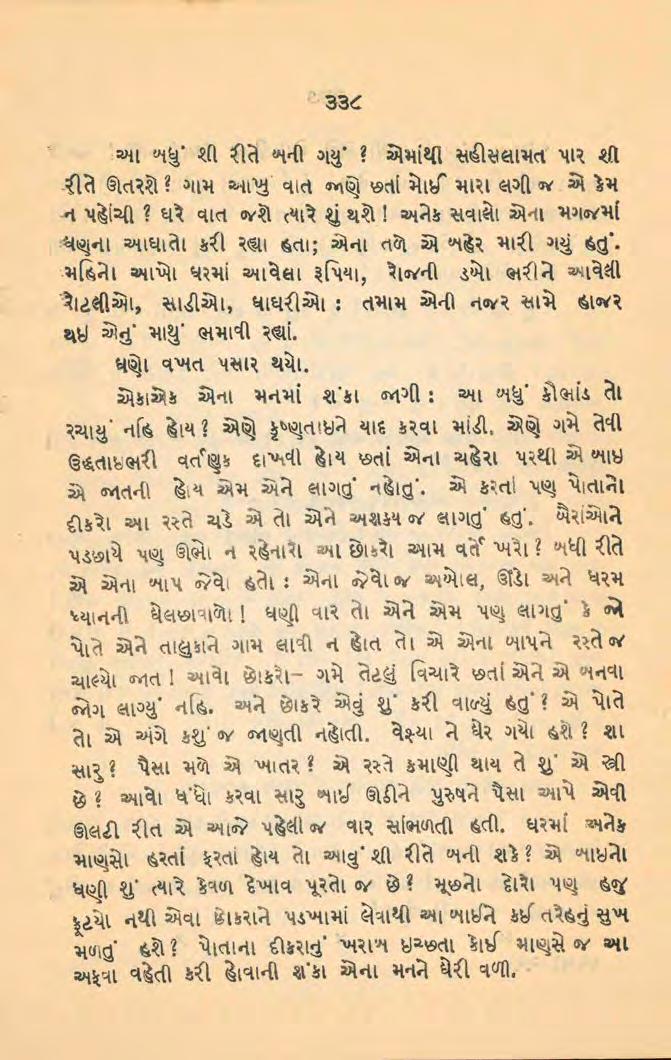 ૩૩૮
આ બધું શી રીતે બની ગયું ? એમાંથી સહીસલામત પાર શી
રીતે ઊતરશે ? ગામ આખુ વાત જાણે છતાં મોઈ મારા લગી જ એ કેમ
ન પહોંચી ? ઘરે વાત જશે ત્યારે શું થશે ! અનેક સવાલો એના મગજમાં
ઘણના આઘાતો કરી રહ્યા હતા; એના તળે એ બહેર મારી ગયું હતું.
મહિનો આખો ઘરમાં આવેલા રૂપિયા, રોજની ડબો ભરીને આવેલી
રોટલીઓ, સાડીઓ, ઘાઘરીઓ : તમામ એની નજર સામે હાજર
થઇ એનું માથું ભમાવી રહ્યાં.
ઘણો વખત પસાર થયો.
એકાએક એના મનમાં શંકા જાગી : આ બધું કૌભાંડ તો
રચાયું નહિ હોય ? એણે કૃષ્ણતાઇને યાદ કરવા માંડી. એણે ગમે તેવી
ઉદ્ધતાઇભરી વર્તણુક દાખવી હોય છતાં એના ચહેરા પરથી એ બાઇ
એ જાતની હોય એમ એને લાગતું નહોતું. એ કરતાં પણ પોતાનો
દીકરો આ રસ્તે ચડે એ તો એને અશક્ય જ લાગતું હતું. બૈરાંઓને
પડછાયે પણ ઊભો ન રહેનારો આ છોકરો આમ વર્તે ખરો ? બધી રીતે
એ એના બાપ જેવો હતો : એના જેવો જ અબોલ, ઊંડો અને ધરમ
ધ્યાનની ઘેલછાવાળો ! ઘણી વાર તો એને એમ પણ લાગતું કે જો
પોતે એને તાલુકાને ગામ લાવી ન હોત તો એ એના બાપને રસ્તે જ
ચાલ્યો જાત ! આવો છોકરો– ગમે તેટલું વિચારે છતાં એને એ બનવા
જોગ લાગ્યું નહિ. અને છોકરે એવું શું કરી વાળ્યું હતું ? એ પોતે
તો એ અંગે કશું જ જાણતી નહોતી. વેશ્યા ને ઘેર ગયો હશે ? શા
સારુ ? પૈસા મળે એ ખાતર ? એ રસ્તે કમાણી થાય તે શું એ સ્ત્રી
છે ? આવો ધંધો કરવા સારુ બાઈ ઊઠીને પુરુષને પૈસા આપે એવી
ઊલટી રીત એ આજે પહેલી જ વાર સાંભળતી હતી. ઘરમાં અનેક
માણસો હરતાં ફરતાં હોય તો આવું શી રીતે બની શકે ? એ બાઇનો
ધણી શું ત્યારે કેવળ દેખાવ પૂરતો જ છે ? મૂછનો દોરો પણ હજુ
ફૂટયો નથી એવા છોકરાને પડખામાં લેવાથી આ બાઈને કઈ તરેહનું સુખ
મળતું હશે ? પોતાના દીકરાનું ખરાબ ઇચ્છતા કોઈ માણસે જ આ
અફવા વહેતી કરી હોવાની શંકા એના મનને ઘેરી વળી.